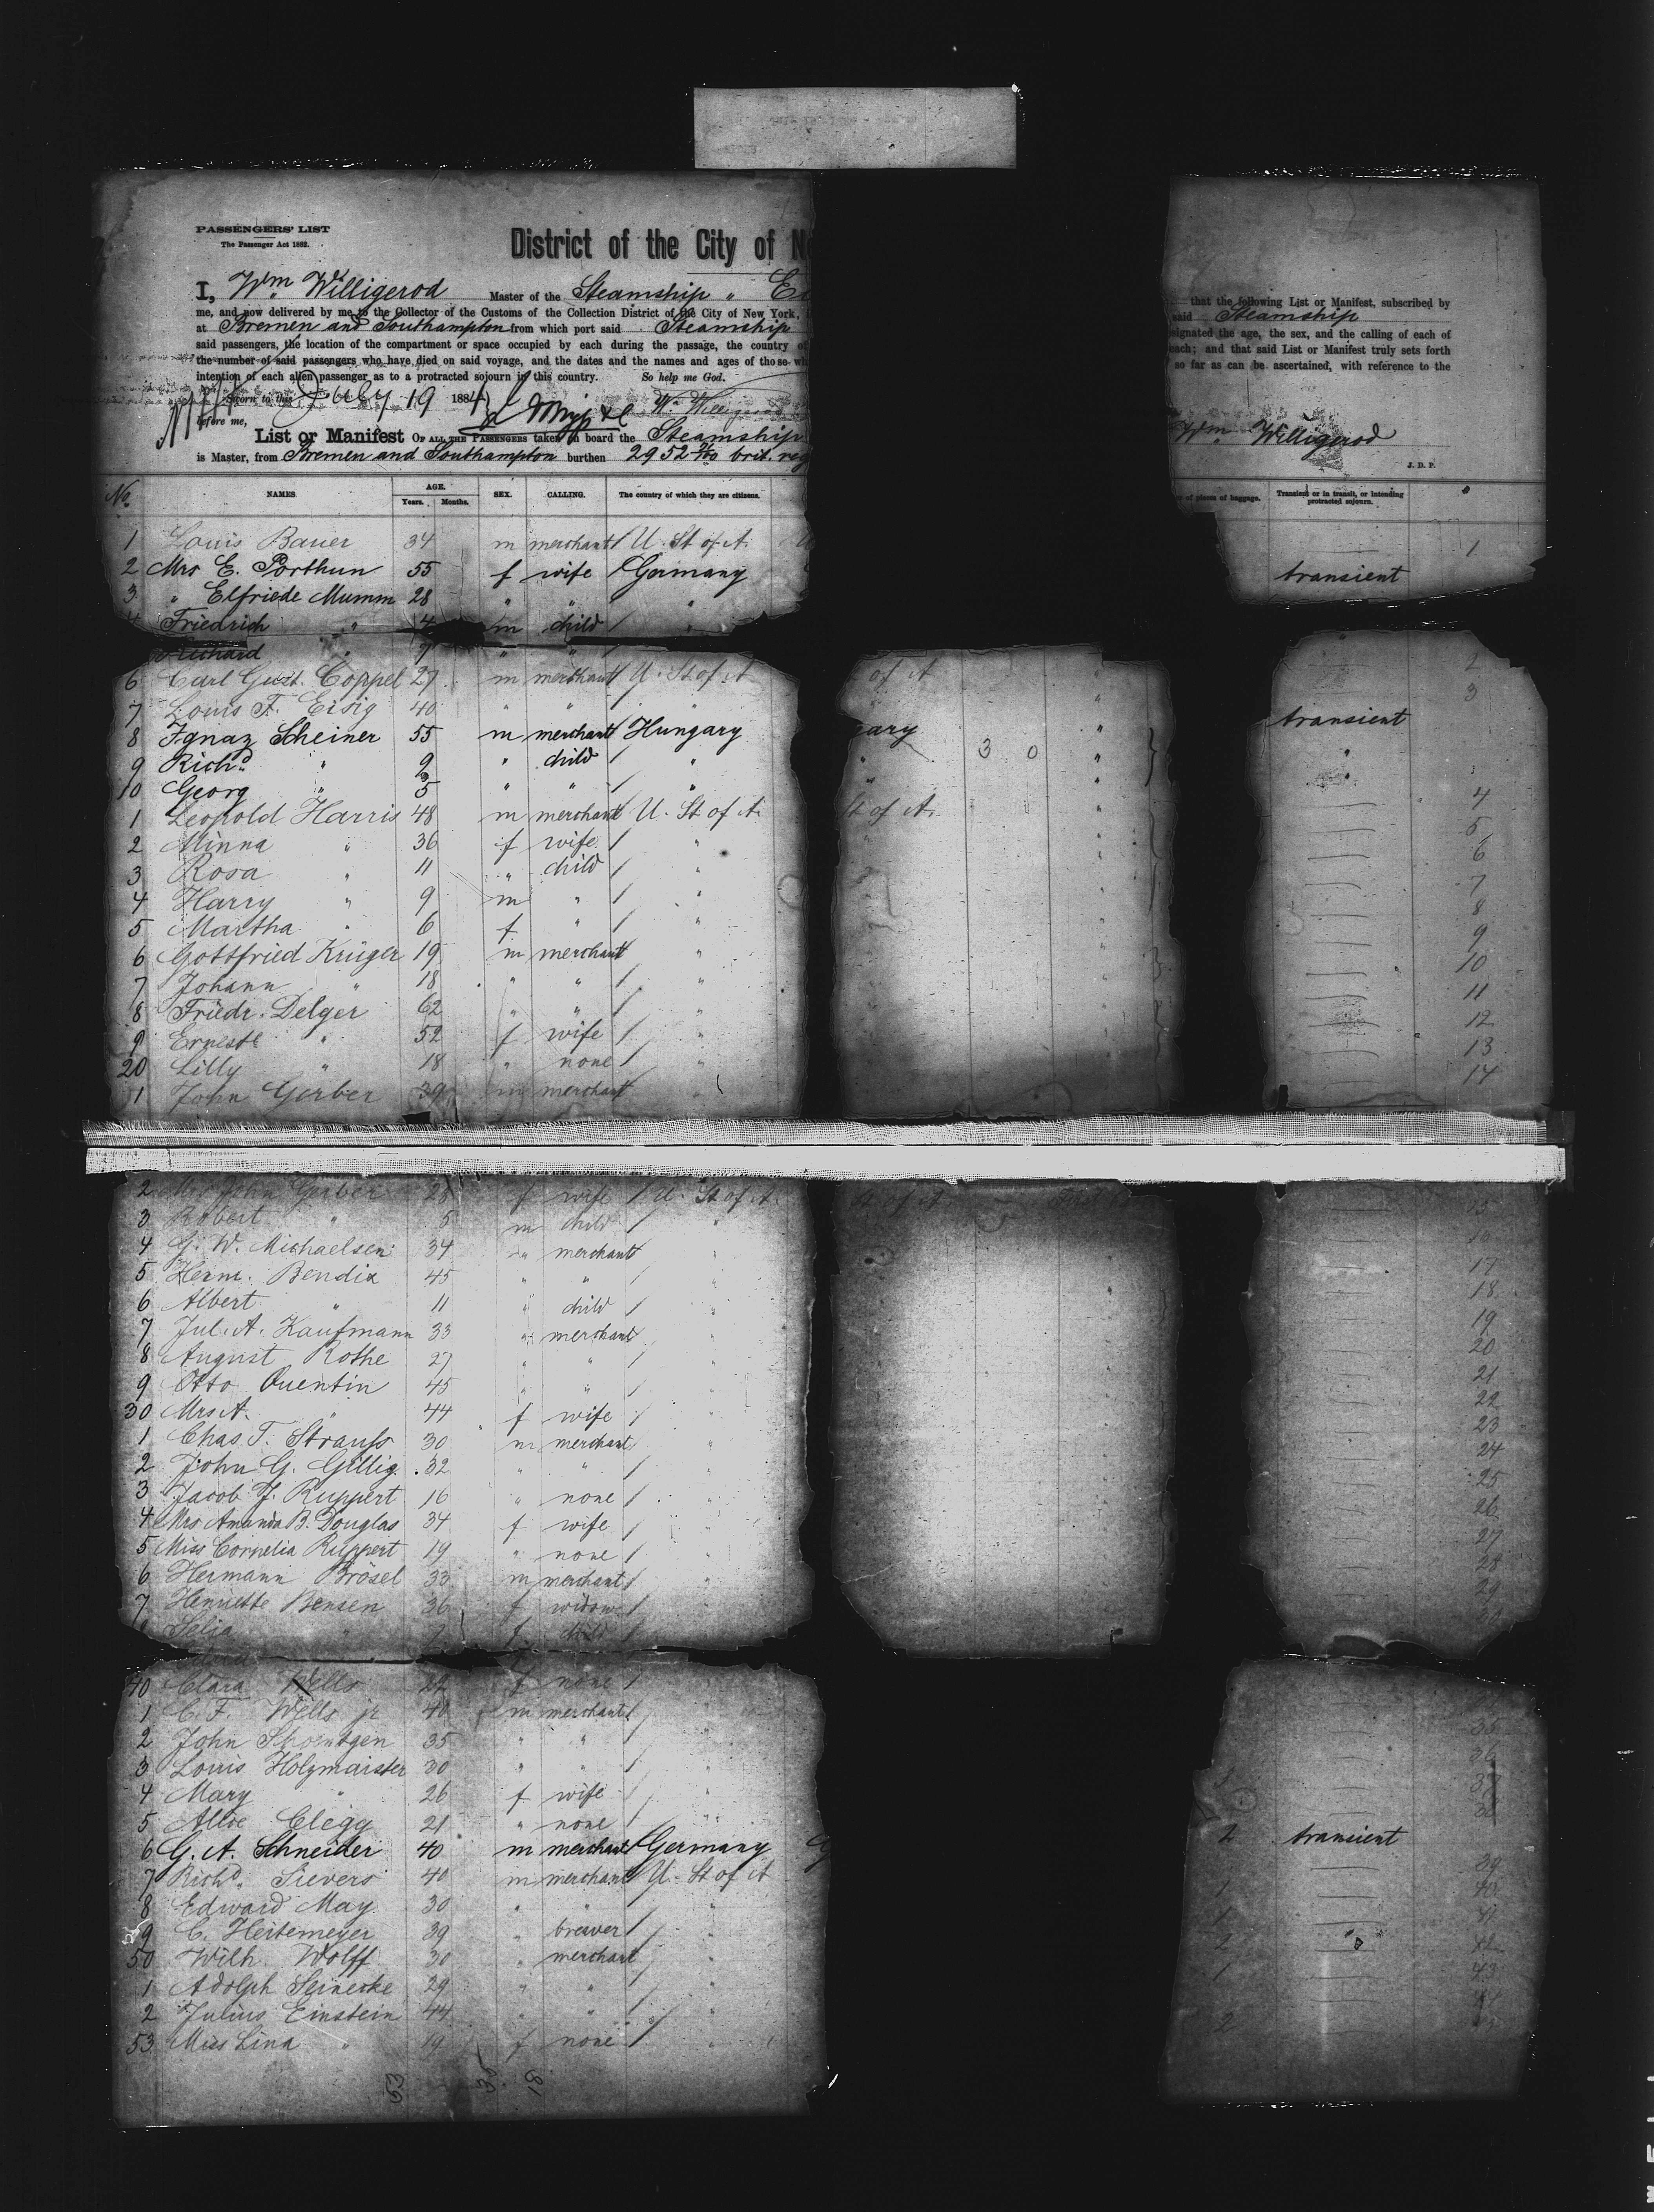 PASSENGERS' LIST
The Passenger Act 1882.
District of the City of N
I, Wm Willigerod Master of the Steamship "
me, and now delivered by me to the Collector of the Customs of the Collection District of the City of New York,
at Bremen and Southampton from which port said Steamship
said passengers, the location of the compartment or space occupied by each during the passage, the country of
the number of said passengers who have died on said voyage, and the dates and the names and ages of those wh
intention of each alien passenger as to a protracted sojourn in this country. So help me God.
Sworn to this July 19 1884 Wm Willigerod
before me,
List or Manifest OF ALL THE PASSENGERS taken on board the Steamship
is Master, from Bremen and Southampton burthen 2952 brit. reg
that the following List or Manifest, subscribed by
said Steamship
esignated the age, the sex, and the calling of each of
each; and that said List or Manifest truly sets forth
so far as can be ascertained, with reference to the
Wm Willigerod
J. D. P.
No. NAMES AGE. Years. Months. SEX. CALLING. The country of which they are citizens. of pieces of baggage. Transient or in transit, or intending protracted sojourn.
1 Louis Bauer 34 m merchant U. St of A. 1
2 Mrs E. Porthun 55 f wife Germany transient
3 " Elfriede Mumm 28 " " "
4 Friedrich " 4 m child "
Richard " " "
6 Carl Gust. Coppel 27 m merchant U. St of A of A 2
7 Louis F. Eisig 40 " " " 3
8 Ignaz Scheiner 55 m merchant Hungary gary transient
9 Richd " 9 " child " " 3 0 " "
10 Georg " 5 " " " " "
1 Leopold Harris 48 m merchant U. St of A. St of A. 4
2 Minna " 36 f wife " 5
3 Rosa " 11 " child " 6
4 Harry " 9 m " " 7
5 Martha " 6 f " " 8
6 Gottfried Krüger 19 m merchant " 9
7 Johann " 18 " " " 10
8 Friedr. Delger 62 " " " 11
9 Erneste " 52 f wife " 12
20 Lilly " 18 " none " 13
1 John Gerber 39 m merchant 14
2 Mrs John Gerber 28 f wife U. St of A. 15
3 Robert " 5 m child " 16
4 G. W. Michaelsen 34 " merchant " 17
5 Herm. Bendix 45 " " " 18
6 Albert " 11 " child " 19
7 Jul. A. Kaufmann 33 " merchant 20
8 August Rothe 27 " " " 21
9 Otto Quentin 45 " " 22
30 Mrs A. " 44 f wife " 23
1 Chas T. Strauss 30 m merchant " 24
2 John G. Gillig 32 " " 25
3 Jacob J. Ruppert 16 " none " 26
4 Mrs Amanda B. Douglas 34 f wife 27
5 Miss Cornelia Ruppert 19 " none " 28
6 Hermann Brösel 33 m merchant " 29
7 Henriette Bensen 36 f widow "
Selia " 7 f child
40 Clara Wells 22 f none
1 C. F. Wells jr 40 m merchant 35
2 John Schoentgen 35 " " 36
3 Louis Holzmaister 30 " " 37
4 Mary " 26 f wife " 38
5 Alice Clegg 21 " none "
6 G. A. Schneider 40 m merchant Germany 2 transient
7 Richd. Sievers 40 m merchant U. St of A 39
8 Edward May 30 " " 1 40
9 C. Heitemeyer 39 " breaver 1 41
50 Wilh. Wolff 30 " merchant 2 " 42
1 Adolph Seinecke 29 " " " 1 43
2 Julius Einstein 44 " " "
53 Miss Lina " 19 f none " 2
53 35 18